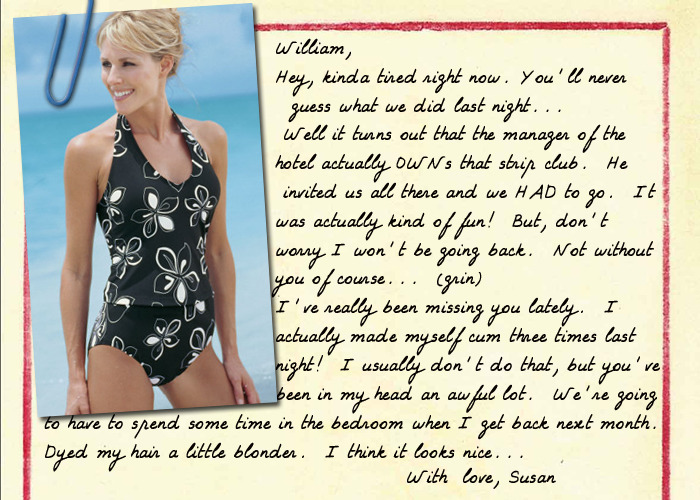 William,
Hey, kinda tired right now. You'll never
guess what we did last night...
Well it turns out that the manager of the
hotel actually OWNs that strip club. He
invited us all there and we HAD to go. It
was actually kind of fun! But, don't
worry I won't be going back. Not without
you of course... (grin)
I've really been missing you lately. I
actually made myself cum three times last
night! I usually don't do that, but you've
been in my head an awful lot. We're going
to have to spend some time in the bedroom when I get back next month.
Dyed my hair a little blonder. I think it looks nice...
With love, Susan